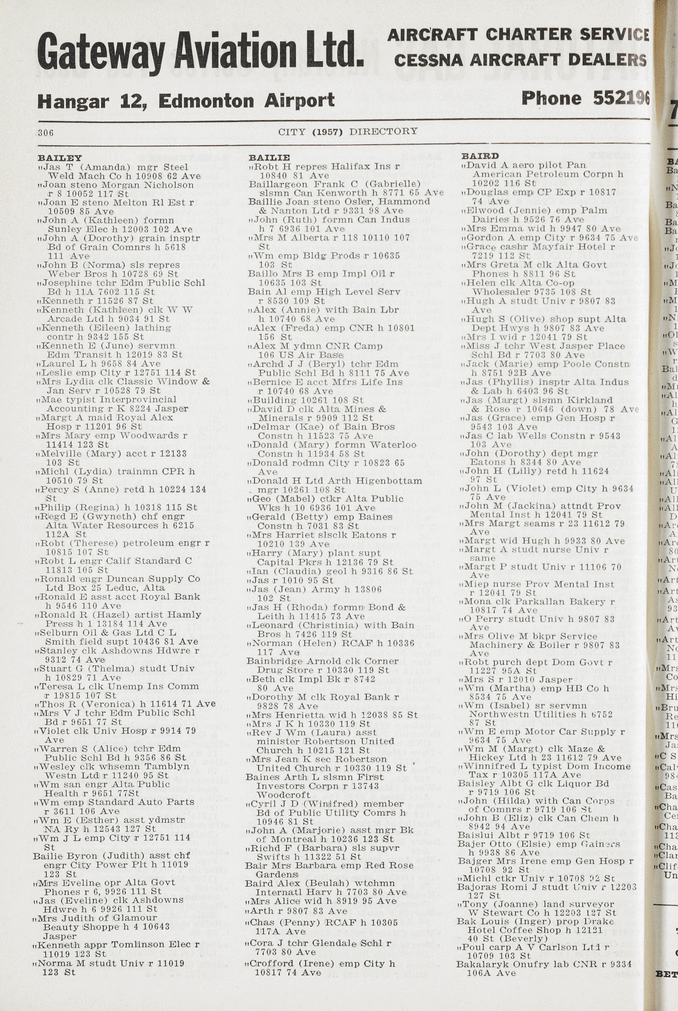 Gateway Aviation Ltd.
AIRCRAFT CHARTER SERVICE
CESSNA AIRCRAFT DEALERS
Hangar 12, Edmonton Airport
Phone 552196
306
CITY (1957) DIRECTORY
BAILEY
„Jas T (Amanda) mgr Steel
Weld Mach Co h 10908 62 Ave
„Joan steno Morgan Nicholson
r 8 10052 117 St
„Joan E steno Melton Rl Est r
10509 85 Ave
„John A (Kathleen) formn
Sunley Elec h 12003 102 Ave
„John A (Dorothy) grain insptr
Bd of Grain Comnrs h 5618
111 Ave
„John B (Norma) sls repres
Weber Bros h 10728 69 St
„Josephine tchr Edm Public Schl
Bd h 11A 7602 115 St
„Kenneth r 11526 87 St
„Kenneth (Kathleen) clk W W
Arcade Ltd h 9034 91 St
„Kenneth (Eileen) lathing
contr h 9342 155 St
„Kenneth E (June) servmn
Edm Transit h 12019 83 St
„Laurel L h 9658 84 Ave
„Leslie emp City r 12751 114 St
„Mrs Lydia clk Classic Window &
Jan Serv r 10528 79 St
„Mae typist Interprovincial
Accounting r K 8224 Jasper
„Margt A maid Royal Alex
Hosp r 11201 96 St
„Mrs Mary emp Woodwards r
11414 123 St
„Melville (Mary) acct r 12133
103 St
„Michl (Lydia) trainmn CPR h
10510 79 St
„Percy S (Anne) retd h 10224 134
St
„Philip (Regina) h 10318 115 St
„Regd E (Gwyneth) chf engr
Alta Water Resources h 6215
112A St
„Robt (Therese) petroleum engr r
10815 107 St
„Robt L engr Calif Standard C
11813 105 St
„Ronald engr Duncan Supply Co
Ltd Box 25 Leduc, Alta
„Ronald E asst acct Royal Bank
h 9546 110 Ave
„Ronald R (Hazel) artist Hamly
Press h 1 13184 114 Ave
„Selburn Oil & Gas Ltd C L
Smith field supt 10436 81 Ave
„Stanley clk Ashdowns Hdwre r
9312 74 Ave
„Stuart G (Thelma) studt Univ
h 10829 71 Ave
„Teresa L clk Unemp Ins Comm
r 19815 107 St
„Thos R (Veronica) h 11614 71 Ave
„Mrs V J tchr Edm Public Schl
Bd r 9651 77 St
„Violet clk Univ Hosp r 9914 79
Ave
„Warren S (Alice) tchr Edm
Public Schl Bd h 9356 86 St
„Wesley clk whsemn Tamblyn
Westn Ltd r 11240 95 St
„Wm san engr Alta Public
Health r 9651 77St
„Wm emp Standard Auto Parts
r 3611 106 Ave
„Wm E (Esther) asst ydmstr
NA Ry h 12543 127 St
„Wm J L emp City r 12751 114
St
Bailie Byron (Judith) asst chf
engr City Power Plt h 11019
123 St
„Mrs Eveline opr Alta Govt
Phones r 6, 9926 111 St
„Jas (Eveline) clk Ashdowns
Hdwre h 6 9926 111 St
„Mrs Judith of Glamour
Beauty Shoppe h 4 10643
Jasper
„Kenneth appr Tomlinson Elec r
11019 123 St
„Norma M studt Univ r 11019
123 St
BAILIE
„Robt H repres Halifax Ins r
10840 81 Ave
Baillargeon Frank C (Gabrielle)
slsmn Can Kenworth h 8771 65 Ave
Baillie Joan steno Osler, Hammond
& Nanton Ltd r 9331 98 Ave
„John (Ruth) formn Can Indus
h 7 6936 101 Ave
„Mrs M Alberta r 118 10110 107
St
„Wm emp Bldg Prods r 10635
103 St
Baillo Mrs B emp Impl Oil r
10635 103 St
Bain Al emp High Level Serv
r 8530 109 St
„Alex (Annie) with Bain Lbr
h 10740 68 Ave
„Alex (Freda) emp CNR h 10801
156 St
„Alex M ydmn CNR Camp
106 US Air Base
„Archd J J (Beryl) tchr Edm
Public Schl Bd h 8111 75 Ave
„Bernice E acct Mfrs Life Ins
r 10740 68 Ave
„Building 10261 108 St
„David D clk Alta Mines &
Minerals r 9909 112 St
„Delmar (Kae) of Bain Bros
Constn h 11523 75 Ave
„Donald (Mary) formn Waterloo
Constn h 11934 58 St
„Donald rodmn City r 10823 65
Ave
„Donald H Ltd Arth Higenbottam
mgr 10261 108 St
„Geo (Mabel) clk Alta Public
Wks h 10 6936 101 Ave
„Gerald (Betty) emp Baines
Constn h 7031 83 St
„Mrs Harriet slsclk Eatons r
10210 139 Ave
„Harry (Mary) plant supt
Capital Pkrs h 12136 79 St
„Ian (Claudia) geol h 9316 86 St
„Jas r 1010 95 St
„Jas (Jean) Army h 13806
102 St
„Jas H (Rhoda) formn Bond &
Leith h 11415 73 Ave
„Leonard (Christinia) with Bain
Bros h 7426 119 St
„Norman (Helen) RCAF h 10336
117 Ave
Bainbridge Arnold clk Corner
Drug Store r 10330 119 St
„Beth clk Impl Bk r 8742
80 Ave
„Dorothy M clk Royal Bank r
9828 78 Ave
„Mrs Henrietta wid h 12038 85 St
„Mrs J K h 10330 119 St
„Rev J Wm (Laura) asst
minister Robertson United
Church h 10215 121 St
„Mrs Jean K sec Robertson
United Church r 10330 119 St
Baines Arth L slsmn First
Investors Corpn r 13743
Woodcroft
„Cyril J D (Winifred) member
Bd of Public Utility Comrs h
10946 81 St
„John A (Marjorie) asst mgr Bk
of Montreal h 10236 123 St
„Richd F (Barbara) sls supvr
Swifts h 11322 51 St
Bair Mrs Barbara emp Red Rose
Gardens
Baird Alex (Beulah) wtchmn
Internatl Harv h 7703 80 Ave
„Mrs Alice wid h 8919 95 Ave
„Arth r 9807 83 Ave
„Chas (Penny) RCAF h 10305
117A Ave
„Cora J tchr Glendale Schl r
7703 80 Ave
„Crofford (Irene) emp City h
10817 74 Ave
BAIRD
„David A aero pilot Pan
American Petroleum Corpn h
10202 116 St
„Douglas emp CP Exp r 10817
74 Ave
„Elwood (Jennie) emp Palm
Dairies h 9526 76 Ave
„Mrs Emma wid h 9947 80 Ave
„Gordon A emp City r 9634 75 Ave
„Grace cashr Mayfair Hotel r
7219 112 St
„Mrs Greta M clk Alta Govt
Phones h 8811 96 St
„Helen clk Alta Co-op
Wholesaler 9735 108 St
„Hugh A studt Univ r 9807 83
Ave
„Hugh S (Olive) shop supt Alta
Dept Hwys h 9807 83 Ave
„Mrs I wid r 12041 79 St
„Miss J tchr West Jasper Place
Schl Bd r 7703 80 Ave
„Jack (Marie) emp Poole Constn
h 8751 92B Ave
„Jas (Phyllis) insptr Alta Indus
& Lab h 6403 96 St
„Jas (Margt) slsmn Kirkland
& Rose r 10646 (down) 78 Ave
„Jas (Grace) emp Gen Hosp r
9543 103 Ave
„Jas C lab Wells Constn r 9543
103 Ave
„John (Dorothy) dept mgr
Eatons h 8344 80 Ave
„John H (Lilly) retd h 11624
97 St
„John L (Violet) emp City h 9634
75 Ave
„John M (Jackina) attndt Prov
Mental Inst h 12041 79 St
„Mrs Margt seams r 23 11612 79
Ave
„Margt wid Hugh h 9933 80 Ave
„Margt A studt nurse Univ r
same
„Margt P studt Univ r 11106 70
Ave
„Miep nurse Prov Mental Inst
r 12041 79 St
„Mona clk Parkallan Bakery r
10817 74 Ave
„O Perry studt Univ h 9807 83
Ave
„Mrs Olive M bkpr Service
Machinery & Boiler r 9807 83
Ave
„Robt purch dept Dom Govt r
11227 95A St
„Mrs S r 12010 Jasper
„Wm (Martha) emp HB Co h
8534 75 Ave
„Wm (Isabel) sr servmn
Northwestn Utilities h 6752
87 St
„Wm E emp Motor Car Supply r
9634 75 Ave
„Wm M (Margt) clk Maze &
Hickey Ltd h 23 11612 79 Ave
„Winnifred L typist Dom Income
Tax r 10305 117A Ave
Baisley Albt G clk Liquor Bd
r 9719 106 St
„John (Hilda) with Can Corps
of Comnrs r 9719 106 St
„John B (Eliz) clk Can Chem h
8942 94 Ave
Baislui Albt r 9719 106 St
Bajer Otto (Elsie) emp Gainers
h 9938 86 Ave
Bajger Mrs Irene emp Gen Hosp r
10708 92 St
„Michl ctkr Univ r 10708 92 St
Bajoras Romi J studt Univ r 12203
127 St
„Tony (Joanne) land surveyor
W Stewart Co h 12203 127 St
Bak Louis (Inger) prop Drake
Hotel Coffee Shop h 12121
40 St (Beverly)
„Poul carp A V Carlson Ltd r
10709 103 St
Bakalaryk Onufry lab CNR r 9334
106A Ave